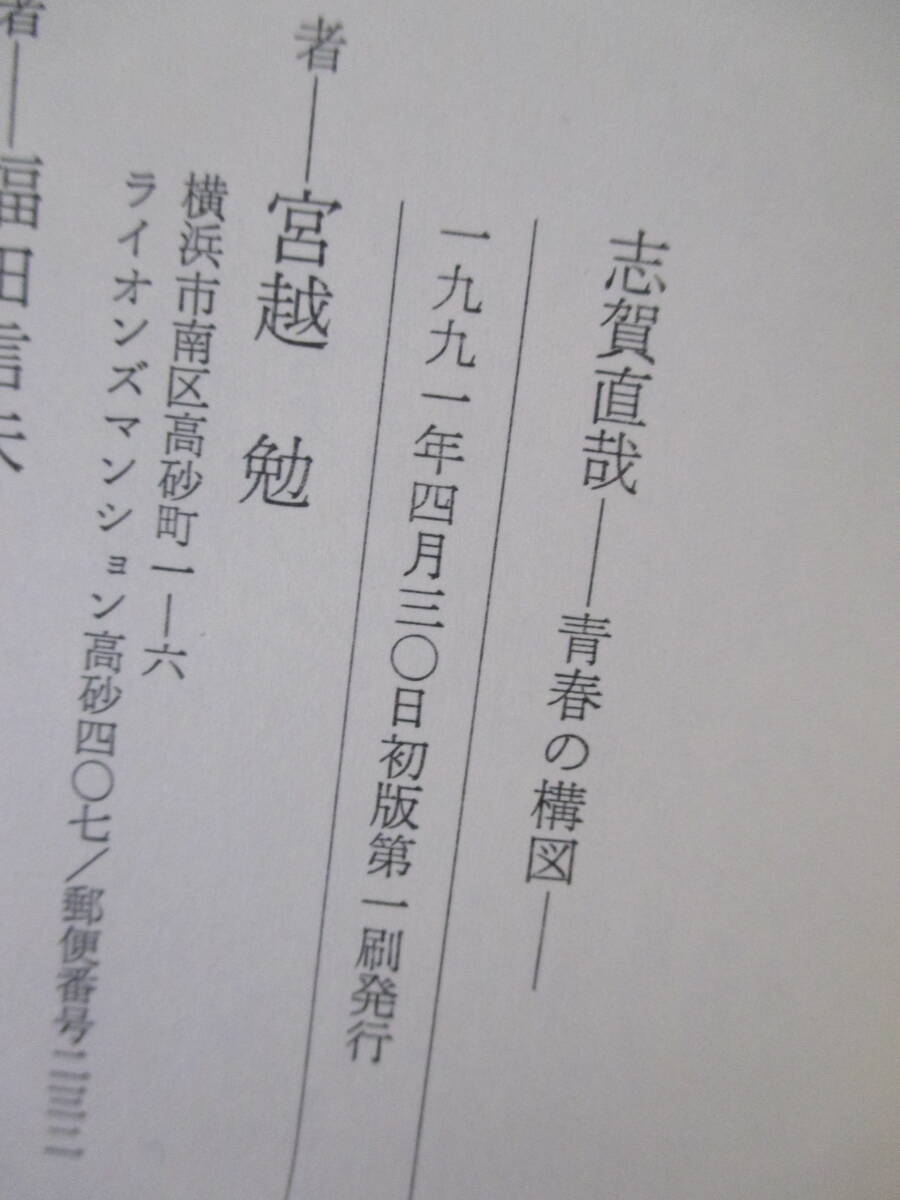 志賀直哉――青春の構図――
一九九一年四月三〇日初版第一刷発行
者――宮越 勉
横浜市南区高砂町一―六
ライオンズマンション高砂四〇七／郵便番号二三二
者――福田信夫